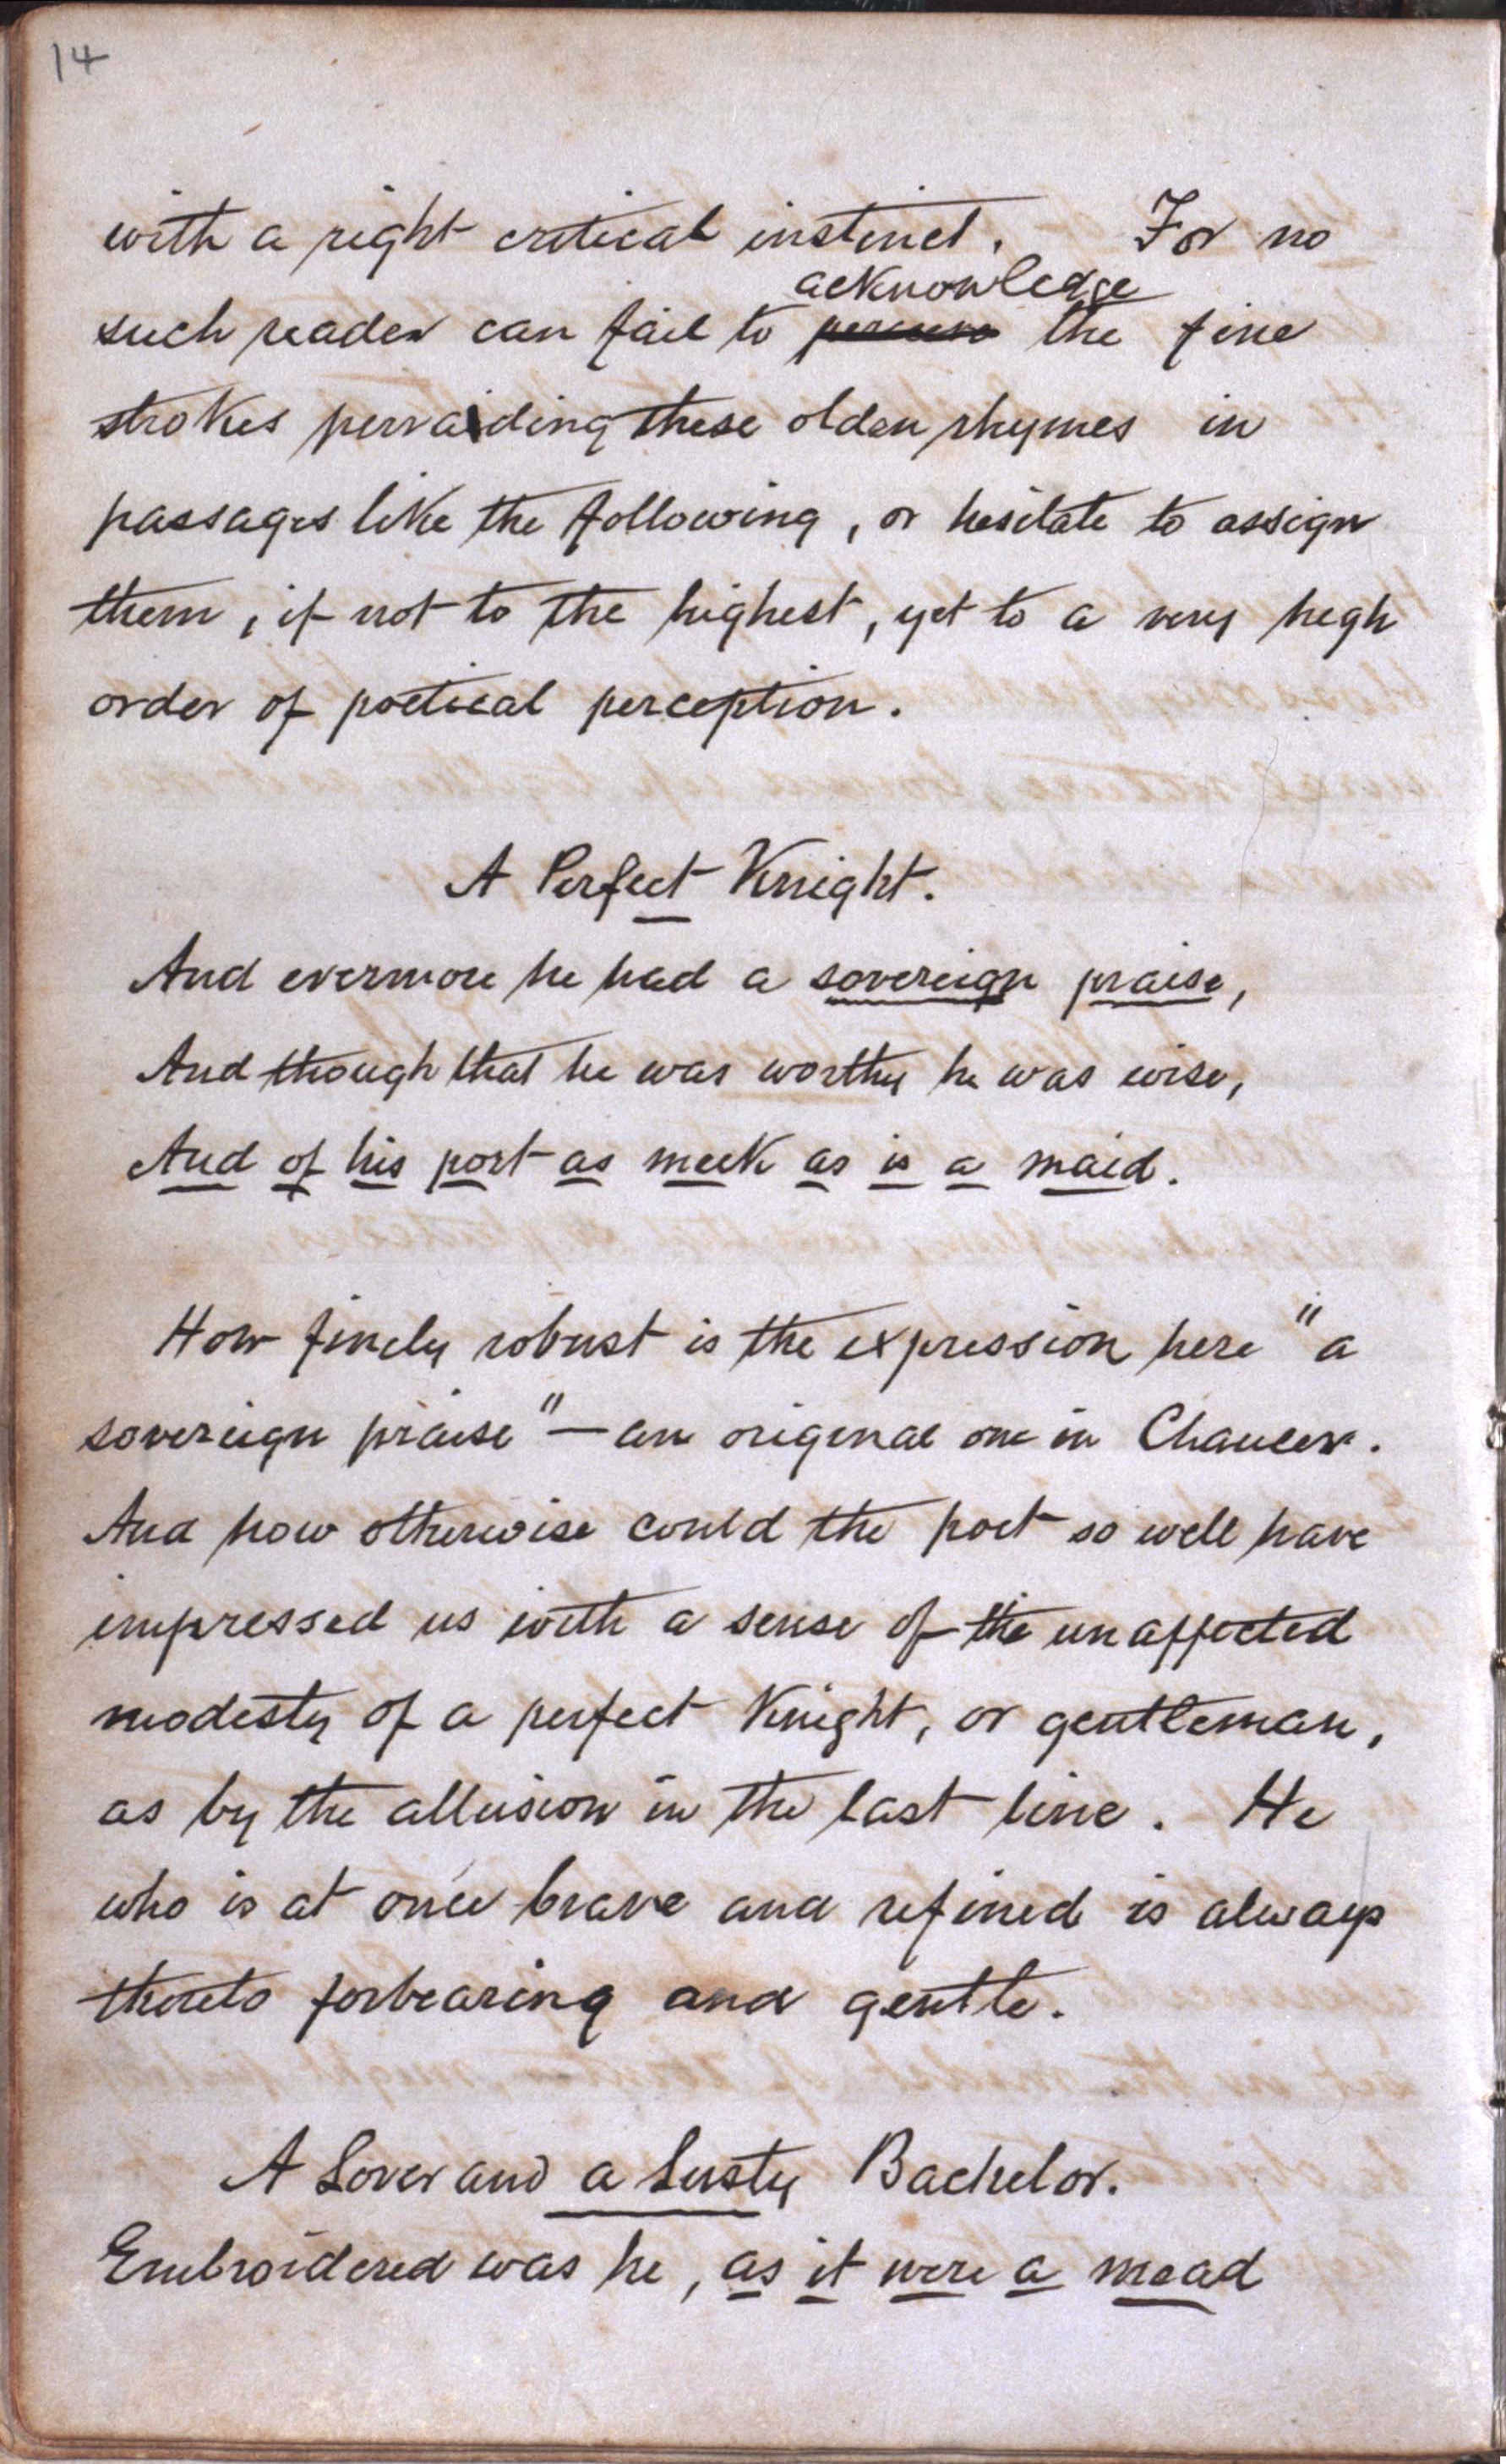 14
with a right critical instinct. For no
acknowledge
such reader can fail to perceive the fine
strokes pervaiding these olden rhymes in
passages like the following, or hesitate to assign
them, if not to the highest, yet to a very high
order of poetical perception.
A Perfect Knight.
And evermore he had a sovereign praise,
And though that he was worthy he was wise,
And of his port as meek as is a maid.
How finely robust is the expression here "a
sovereign praise" — an original one in Chaucer.
And how otherwise could the poet so well have
impressed us with a sense of the unaffected
modesty of a perfect Knight, or gentleman,
as by the allusion in the last line. He
who is at once brave and refined is always
thereto forbearing and gentle.
A Lover and a Lusty Bachelor.
Embroidered was he, as it were a mead